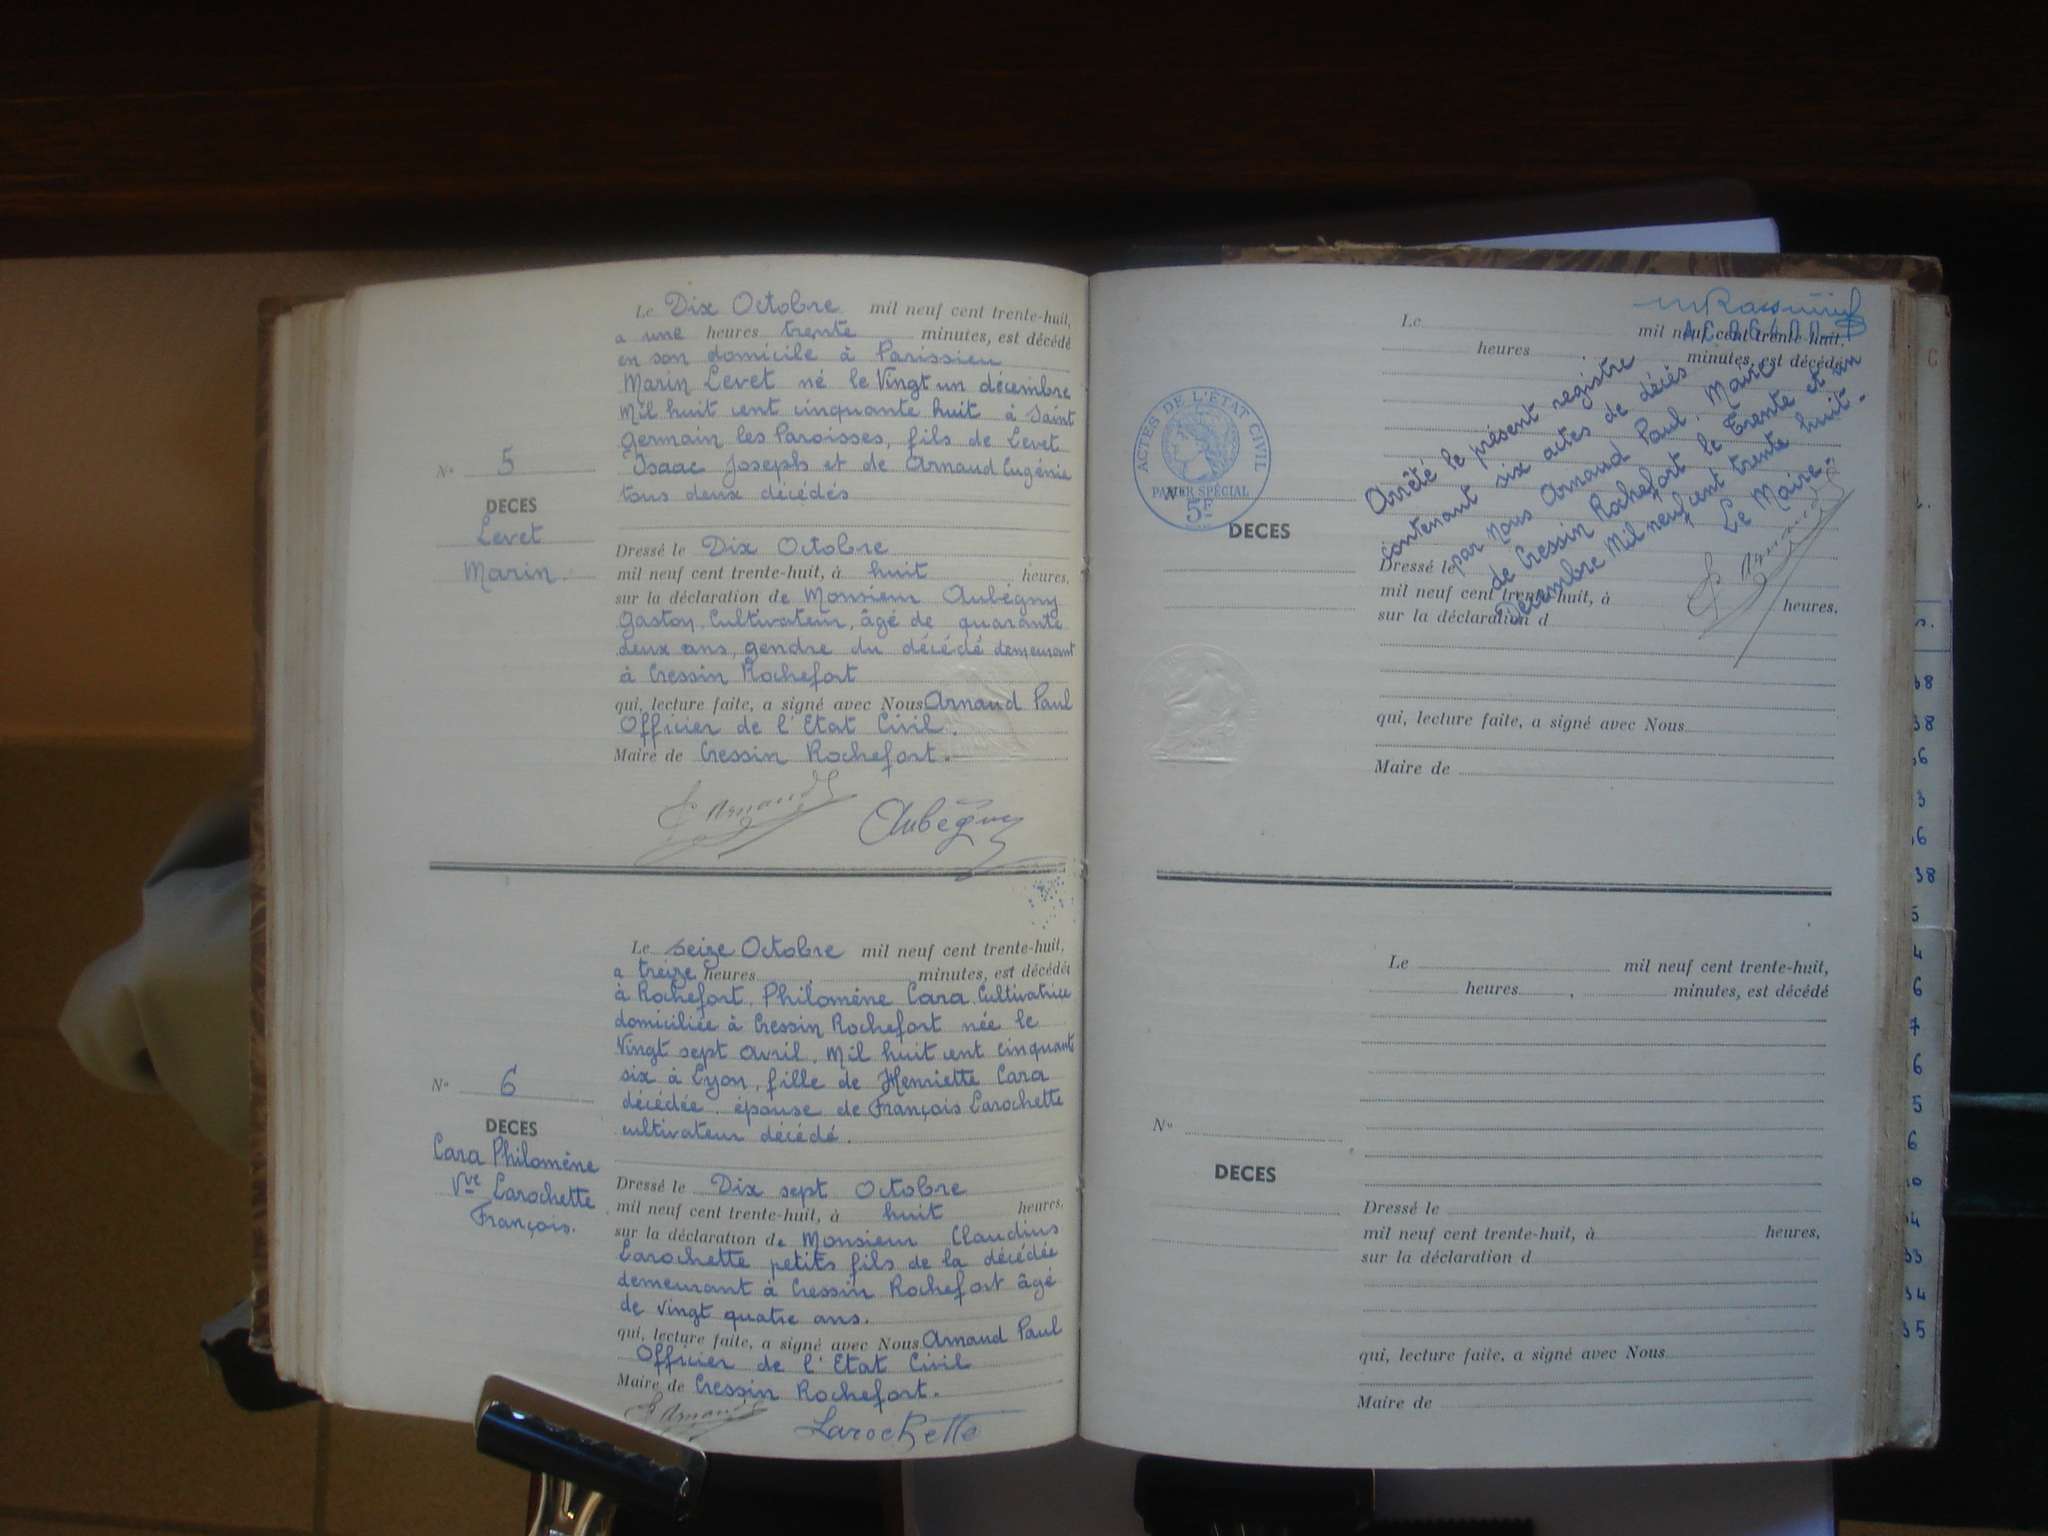 Le Dix Octobre mil neuf cent trente-huit,
a une heures trente minutes, est décédé
en son domicile à Parissieu
Marin Levet né le Vingt un décembre
Mil huit cent cinquante huit à Saint
Germain les Paroisses, fils de Levet
Isaac Joseph et de Arnaud Eugénie
tous deux décédés
N° 5
DECES
Levet
Marin.
Dressé le Dix Octobre
mil neuf cent trente-huit, à huit heures,
sur la déclaration de Monsieur Aubégny
Gaston, Cultivateur, âgé de quarante
deux ans, gendre du décédé demeurant
à Cressin Rochefort
qui, lecture faite, a signé avec Nous Arnaud Paul
Officier de l'Etat Civil.
Maire de Cressin Rochefort.
P Arnaud Aubégny
Le seize Octobre mil neuf cent trente-huit,
a treize heures minutes, est décédé
à Rochefort, Philomène Cara Cultivatrice
domiciliée à Cressin Rochefort née le
Vingt sept avril, Mil huit cent cinquante
six à Lyon, fille de Henriette Cara
décédée. épouse de François Larochette
cultivateur décédé.
N° 6
DECES
Cara Philomène
Vve Larochette
François.
Dressé le Dix sept Octobre
mil neuf cent trente-huit, à huit heures,
sur la déclaration de Monsieur Claudius
Larochette petits fils de la décédée
demeurant à Cressin Rochefort âgé
de vingt quatre ans.
qui, lecture faite, a signé avec Nous Arnaud Paul
Officier de l'Etat Civil
Maire de Cressin Rochefort.
P Arnaud Larochette
Le mil neuf cent trente-huit,
heures, minutes, est décédé
Arrêté le présent registre
contenant six actes de décès
par Nous Arnaud Paul, Maire
de Cressin Rochefort le Trente et un
Décembre Mil neuf cent trente huit.
Le Maire.
P Arnaud
ACTES DE L'ÉTAT CIVIL
PAPIER SPÉCIAL
5F
N°
DECES
Dressé le
mil neuf cent trente-huit, à heures.
sur la déclaration d
qui, lecture faite, a signé avec Nous
Maire de
Le mil neuf cent trente-huit,
heures, minutes, est décédé
N°
DECES
Dressé le
mil neuf cent trente-huit, à heures,
sur la déclaration d
qui, lecture faite, a signé avec Nous
Maire de